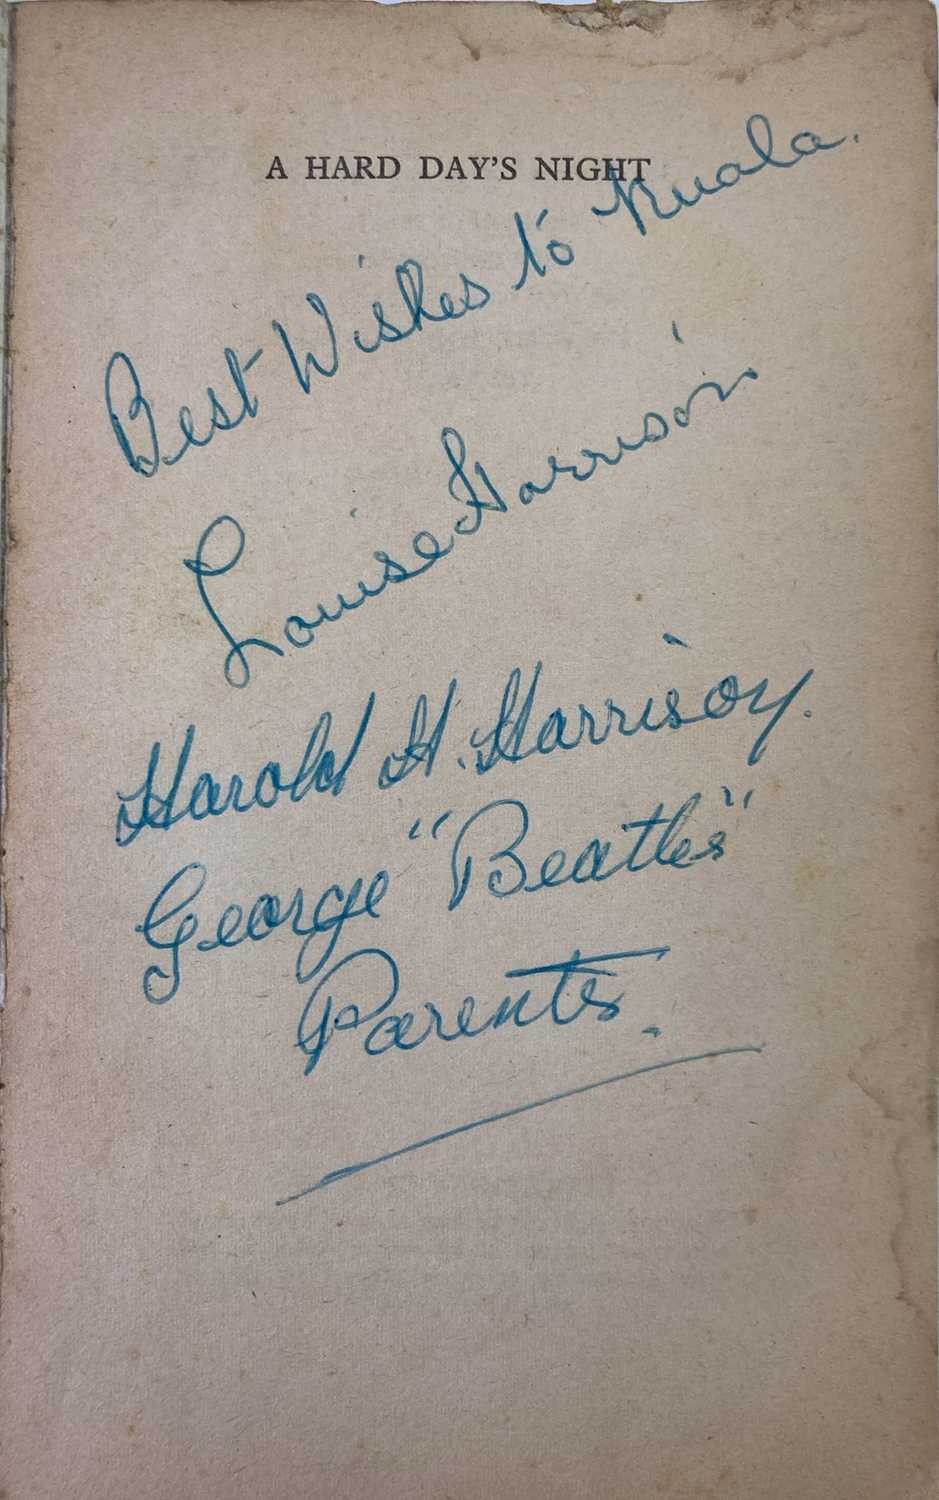 A HARD DAY'S NIGHT
Best Wishes to Kuala.
Louise Harrison
Harold H. Harrison.
George "Beatles"
Parents.